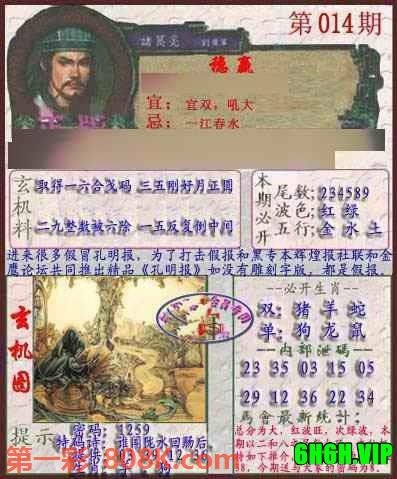 第014期
諸葛亮
稳赢
宜：宜双，吼大
忌：一江春水
玄机料
取得一六合戋吗 三五刚好月正圆
二九整数被六除 一五反复倒中间
本期必开
尾数：234589
波色：红 绿
五行：金 水 土
进来很多假冒孔明报，为了打击假报和黑专本辉煌报社联和金
鹰论坛共同推出精品《孔明报》如没有雕刻字版，都是假报。
玄机图
必开生肖
双：猪 羊 蛇
单：狗 龙 鼠
内部泄码
23 35 03 15 05
29 12 36 22 34
馬會最新統計：
总分为大，红波旺，次绿波，本
提示
密码：1259
特码诗：谁闻陇水回肠后，
03 09 12 36
第一彩 808K.com
6HGH.VIP